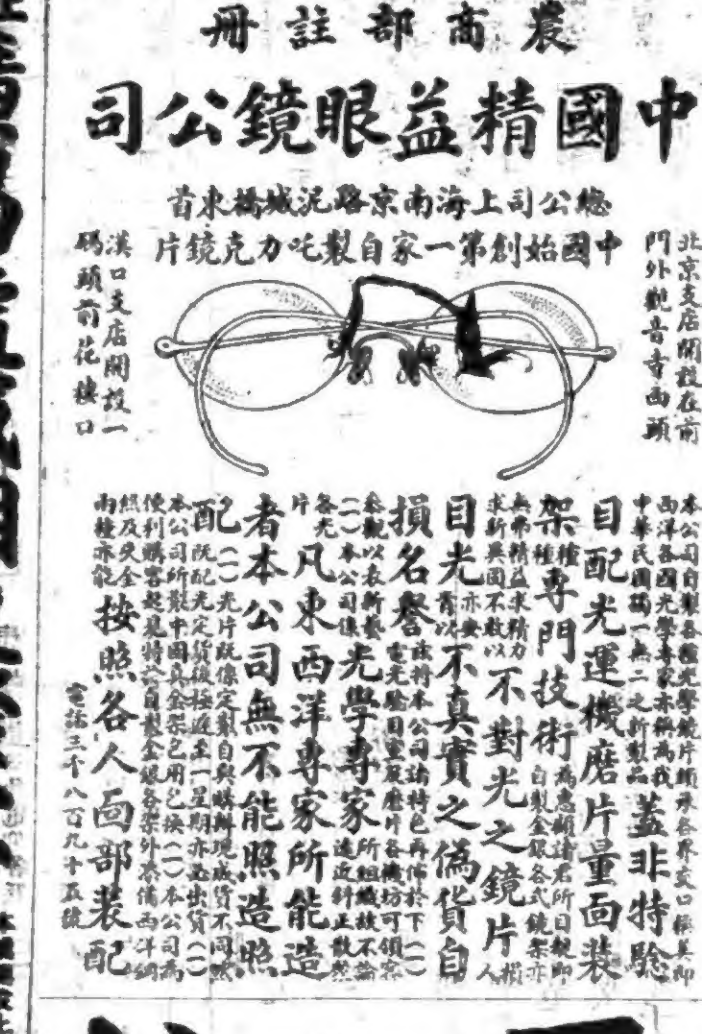 農商部註冊
中國精益眼鏡公司
總公司上海南京路泥城橋東首
中國始創第一家自製吒力克鏡片
北京支店開設在前
門外觀音寺西頭
漢口支店開設一
碼頭前花樓口
本公司自製各種光學鏡片頗承各界交口稱美即
西洋各國光學專家亦稱為我
中華民國獨一無二之新製品蓋非特驗
目配光運機磨片量面裝
架種種專門技術為惠顧諸君所目覩即自製金銀各式鏡架亦
無弗精益求精力求新異固不敢以不對光之鏡片損人
目光亦安肯以不真實之偽貨自
損名譽茲特將本公司諸特色再佈於下(一)電光驗目室及磨片各機坊可領客
參觀以表新藝(二)本公司係光學專家所組織故不論遠近斜正散然
各光片凡東西洋專家所能造
者本公司無不能照造照
配(一)光片既係定製自與購辦現成貨不同然既配光定貨後極遲至一星期亦必出貨(一)
本公司所散中國真金架包用包換(一)本公司為
便利購客起見特於自製金銀各架外兼備西洋鋼
照及夾金兩種亦能按照各人面部裝配
電話三千八百九十五號